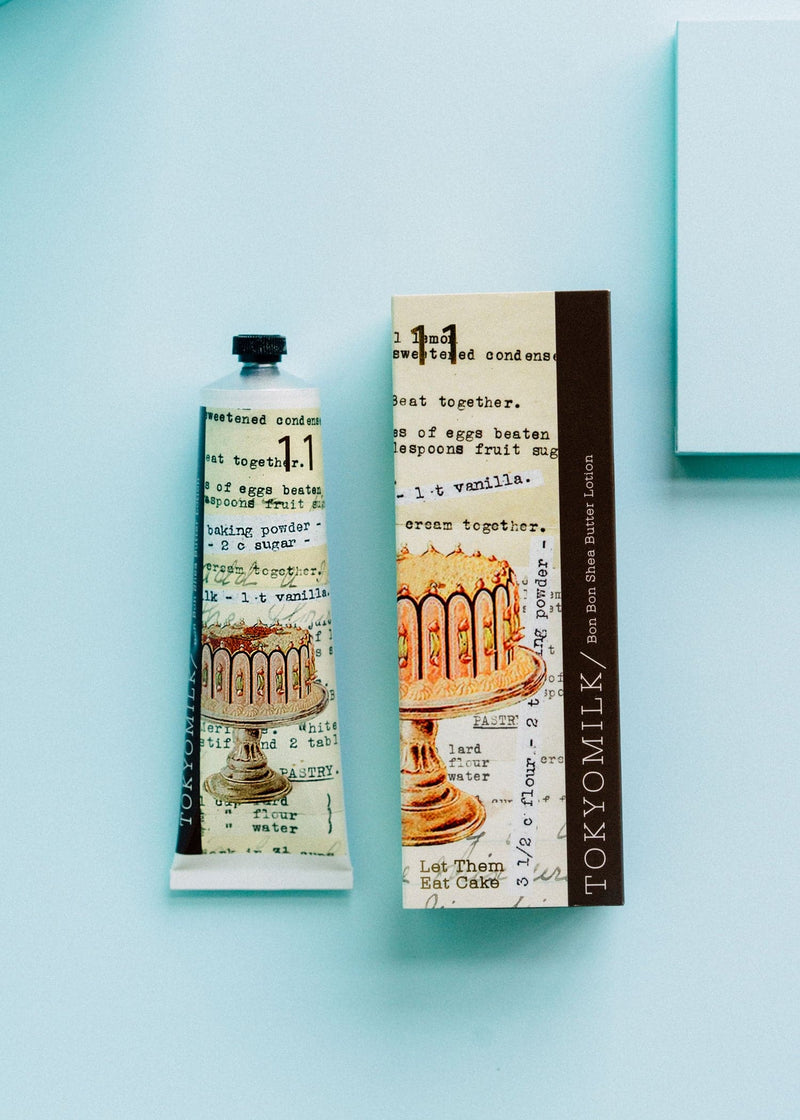 sweetened condens
11
eat together.
s of eggs beaten
aspoons fruit su
baking powder -
- 2 c sugar -
cream together.
lk - 1 t vanilla.
White
nd 2 tabl
PASTRY.
1 cup lard
" flour
" water
TOKYOMILK/
1 lemon
11
sweetened condense
Beat together.
es of eggs beaten
lespoons fruit sug
- 1 t vanilla.
cream together.
PASTR
lard
flour
water
3 1/2 c flour - 2 t
ng powder -
Let Them
Eat Cake
TOKYOMILK/ Bon Bon Shea Butter Lotion